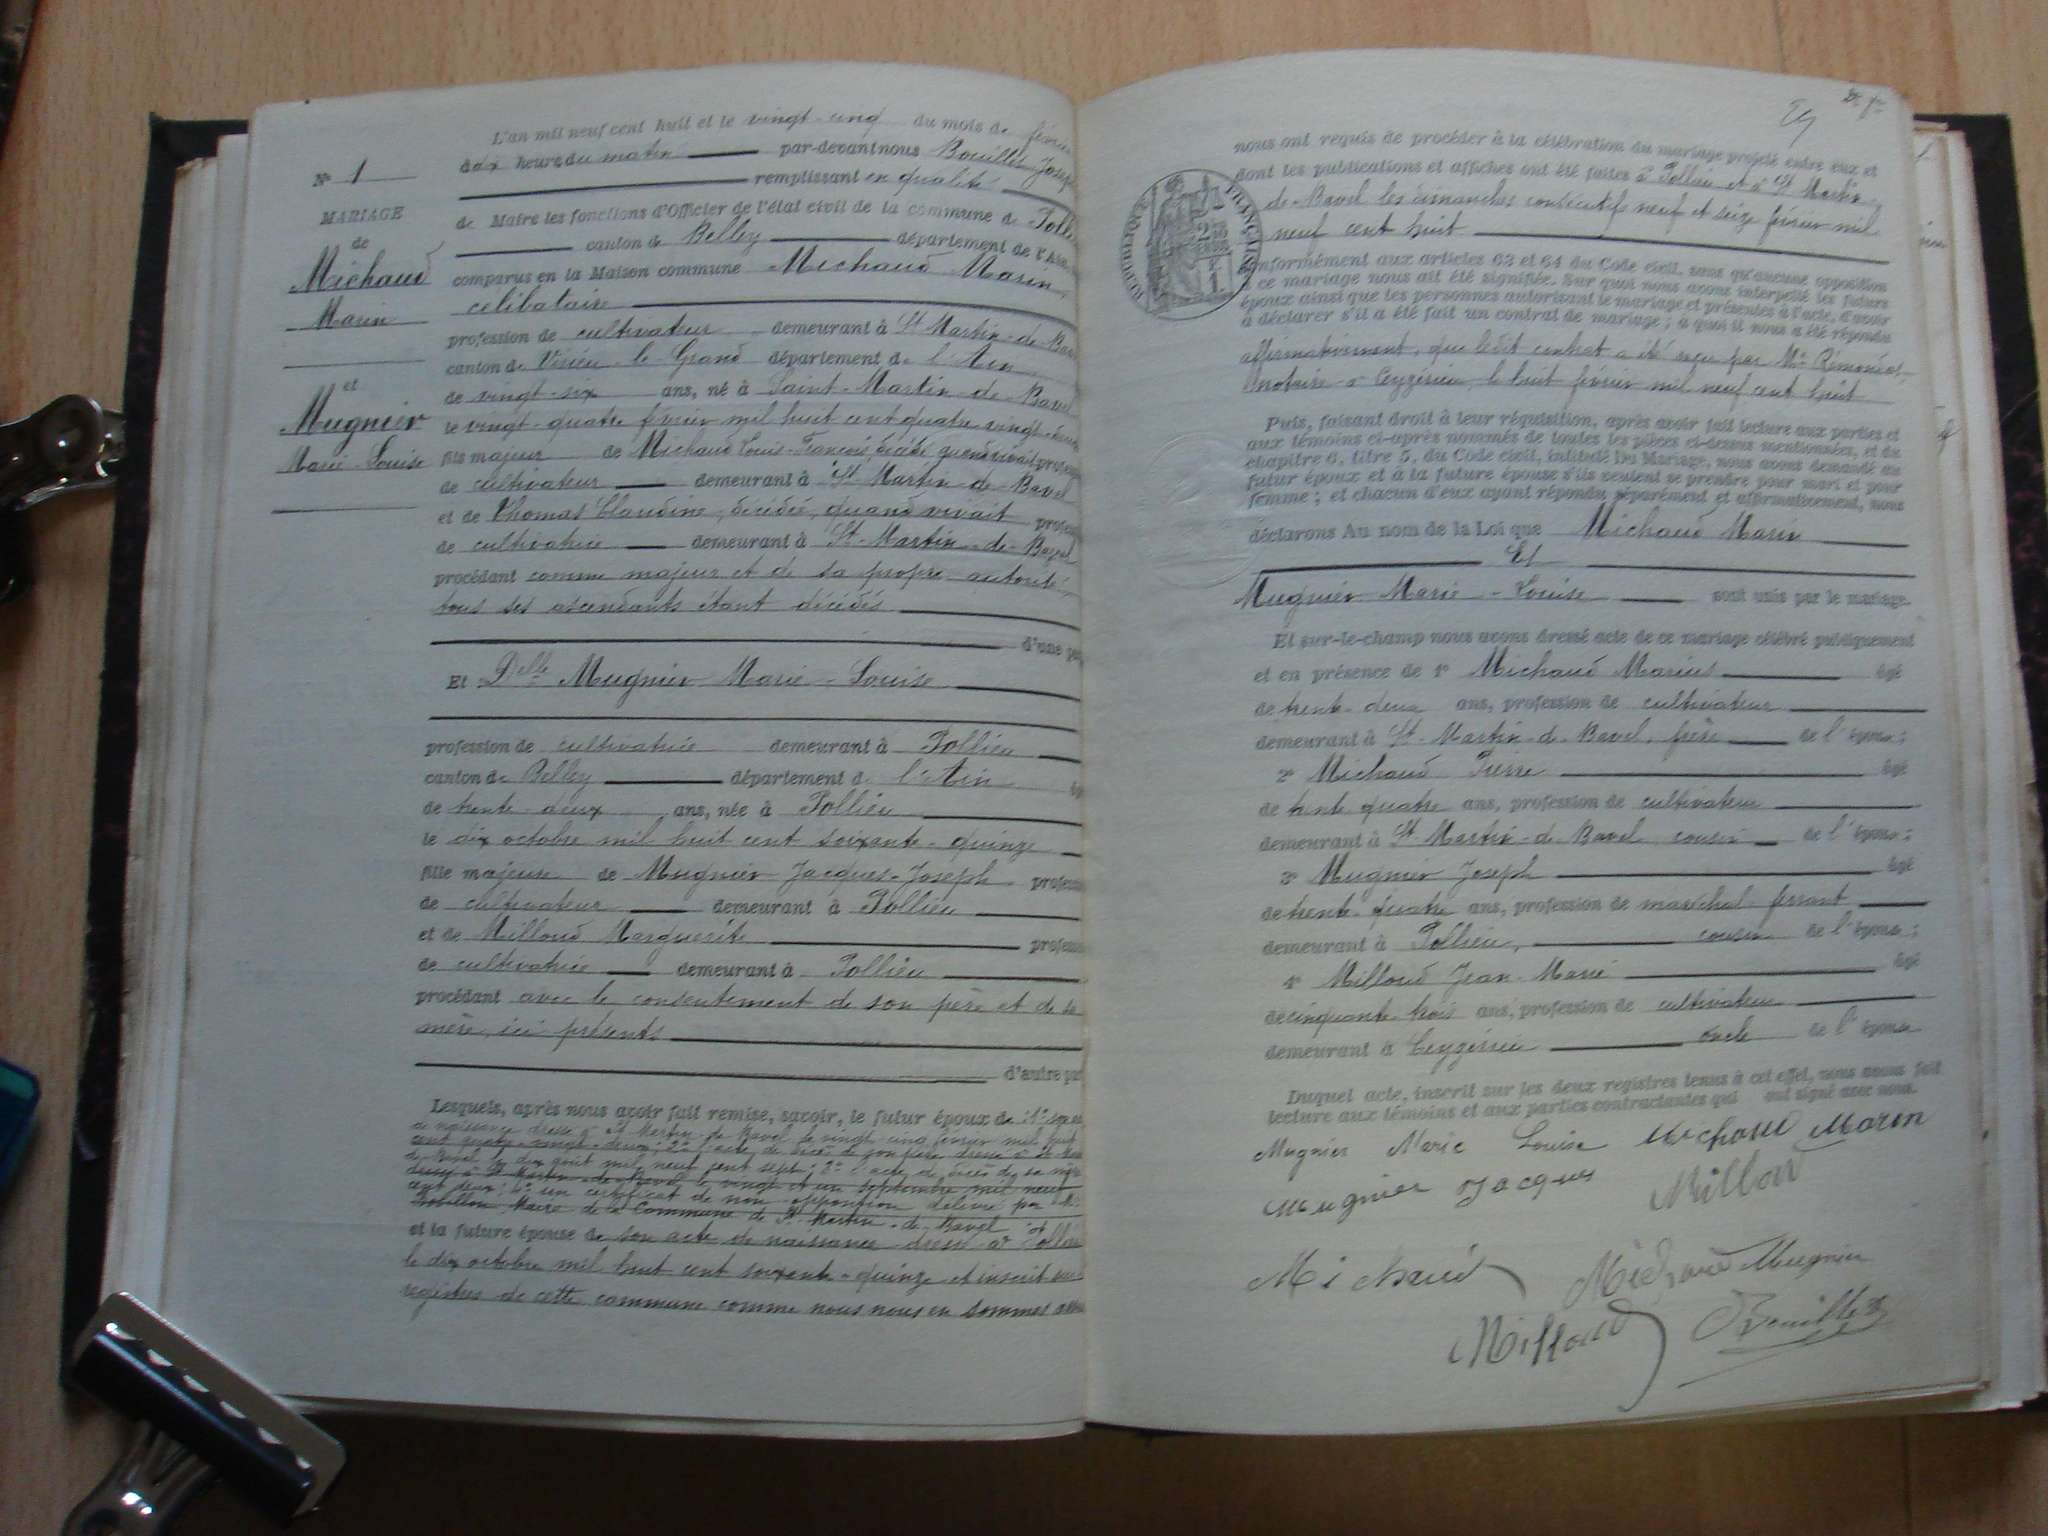 L'an mil neuf cent huit et le vingt-cinq du mois de février
dix heure du matin par-devant nous Bouillet Joseph
remplissant en qualité
de Maire les fonctions d'Officier de l'état civil de la commune de Polli
canton de Belley département de l'Ain
comparus en la Maison commune Michaud Marin,
célibataire
profession de cultivateur demeurant à St Martin-de-Bav
canton de Virieu-le-Grand département de l'Ain
de vingt-six ans, né à Saint-Martin-de-Bavel
le vingt-quatre février mil huit cent quatre-vingt-deux
fils majeur de Michaud Louis-François, décédé quand vivait profess
de cultivateur demeurant à St Martin-de-Bavel
et de Thomas Claudine, décédée, quand vivait profess
de cultivatrice demeurant à St-Martin-de-Bavel
procédant comme majeur et de sa propre autorité,
tous ses ascendants étant décédés
d'une pa
Et Delle Mugnier Marie-Louise
profession de cultivatrice demeurant à Pollieu
canton de Belley département de l'Ain
de trente-deux ans, née à Pollieu
le dix octobre mil huit cent soixante-quinze
fille majeure de Mugnier Jacques-Joseph professi
de cultivateur demeurant à Pollieu
et de Milloud Marguerite professi
de cultivatrice demeurant à Pollieu
procédant avec le consentement de son père et de sa
mère, ici présents
d'autre par
Lesquels, après nous avoir fait remise, savoir, le futur époux de : 1° son acte
de naissance dressé à St Martin de Bavel le vingt cinq février mil huit
cent quatre-vingt-deux; 2° l'acte de décès de son père dressé à St Martin
de Bavel le dix août mil neuf cent sept; 3° l'acte de décès de sa mère
dressé à St Martin-de-Bavel le vingt et un septembre mil neuf
cent deux; 4° un certificat de non opposition délivré par Mr
Maire de la Commune de St Martin-de-Bavel
et la future épouse de son acte de naissance dressé à Pollieu
le dix octobre mil huit cent soixante-quinze et inscrit aux
registres de cette commune comme nous nous en sommes
N° 1
MARIAGE
de
Michaud
Marin
et
Mugnier
Marie-Louise
nous ont requis de procéder à la célébration du mariage projeté entre eux et
dont les publications et affiches ont été faites à Pollieu et à St Martin-
de-Bavel les dimanches consécutifs neuf et seize février mil
neuf cent huit
RÉPUBLIQUE FRANÇAISE
conformément aux articles 63 et 64 du Code civil, sans qu'aucune opposition
à ce mariage nous ait été signifiée. Sur quoi nous avons interpellé les futurs
époux ainsi que les personnes autorisant le mariage et présentes à l'acte, d'avoir
à déclarer s'il a été fait un contrat de mariage ; à quoi il nous a été répondu
affirmativement, que ledit contrat a été reçu par Me Rémond,
notaire à Ceyzérieu, le huit février mil neuf cent huit
Puis, faisant droit à leur réquisition, après avoir fait lecture aux parties et
aux témoins ci-après nommés de toutes les pièces ci-dessus mentionnées, et du
chapitre 6, titre 5, du Code civil, intitulé Du Mariage, nous avons demandé au
futur époux et à la future épouse s'ils veulent se prendre pour mari et pour
femme ; et chacun d'eux ayant répondu séparément et affirmativement, nous
déclarons Au nom de la Loi que Michaud Marin
Et
Mugnier Marie-Louise sont unis par le mariage.
Et sur-le-champ nous avons dressé acte de ce mariage célébré publiquement
et en présence de 1° Michaud Marius âgé
de trente-deux ans, profession de cultivateur
demeurant à St Martin-de-Bavel, frère de l'époux ;
2° Michaud Pierre âgé
de trente quatre ans, profession de cultivateur
demeurant à St Martin-de-Bavel, cousin de l'époux ;
3° Mugnier Joseph âgé
de trente-quatre ans, profession de maréchal-ferrant
demeurant à Pollieu, cousin de l'épouse ;
4° Milloud Jean-Marie âgé
de cinquante trois ans, profession de cultivateur
demeurant à Ceyzérieu oncle de l'épouse
Duquel acte, inscrit sur les deux registres tenus à cet effet, nous avons fait
lecture aux témoins et aux parties contractantes qui ont signé avec nous.
Mugnier Marie Louise Michaud Marin
Mugnier Jacques Millou
Michaud Michaud Mugnier
Milloud Bouillet